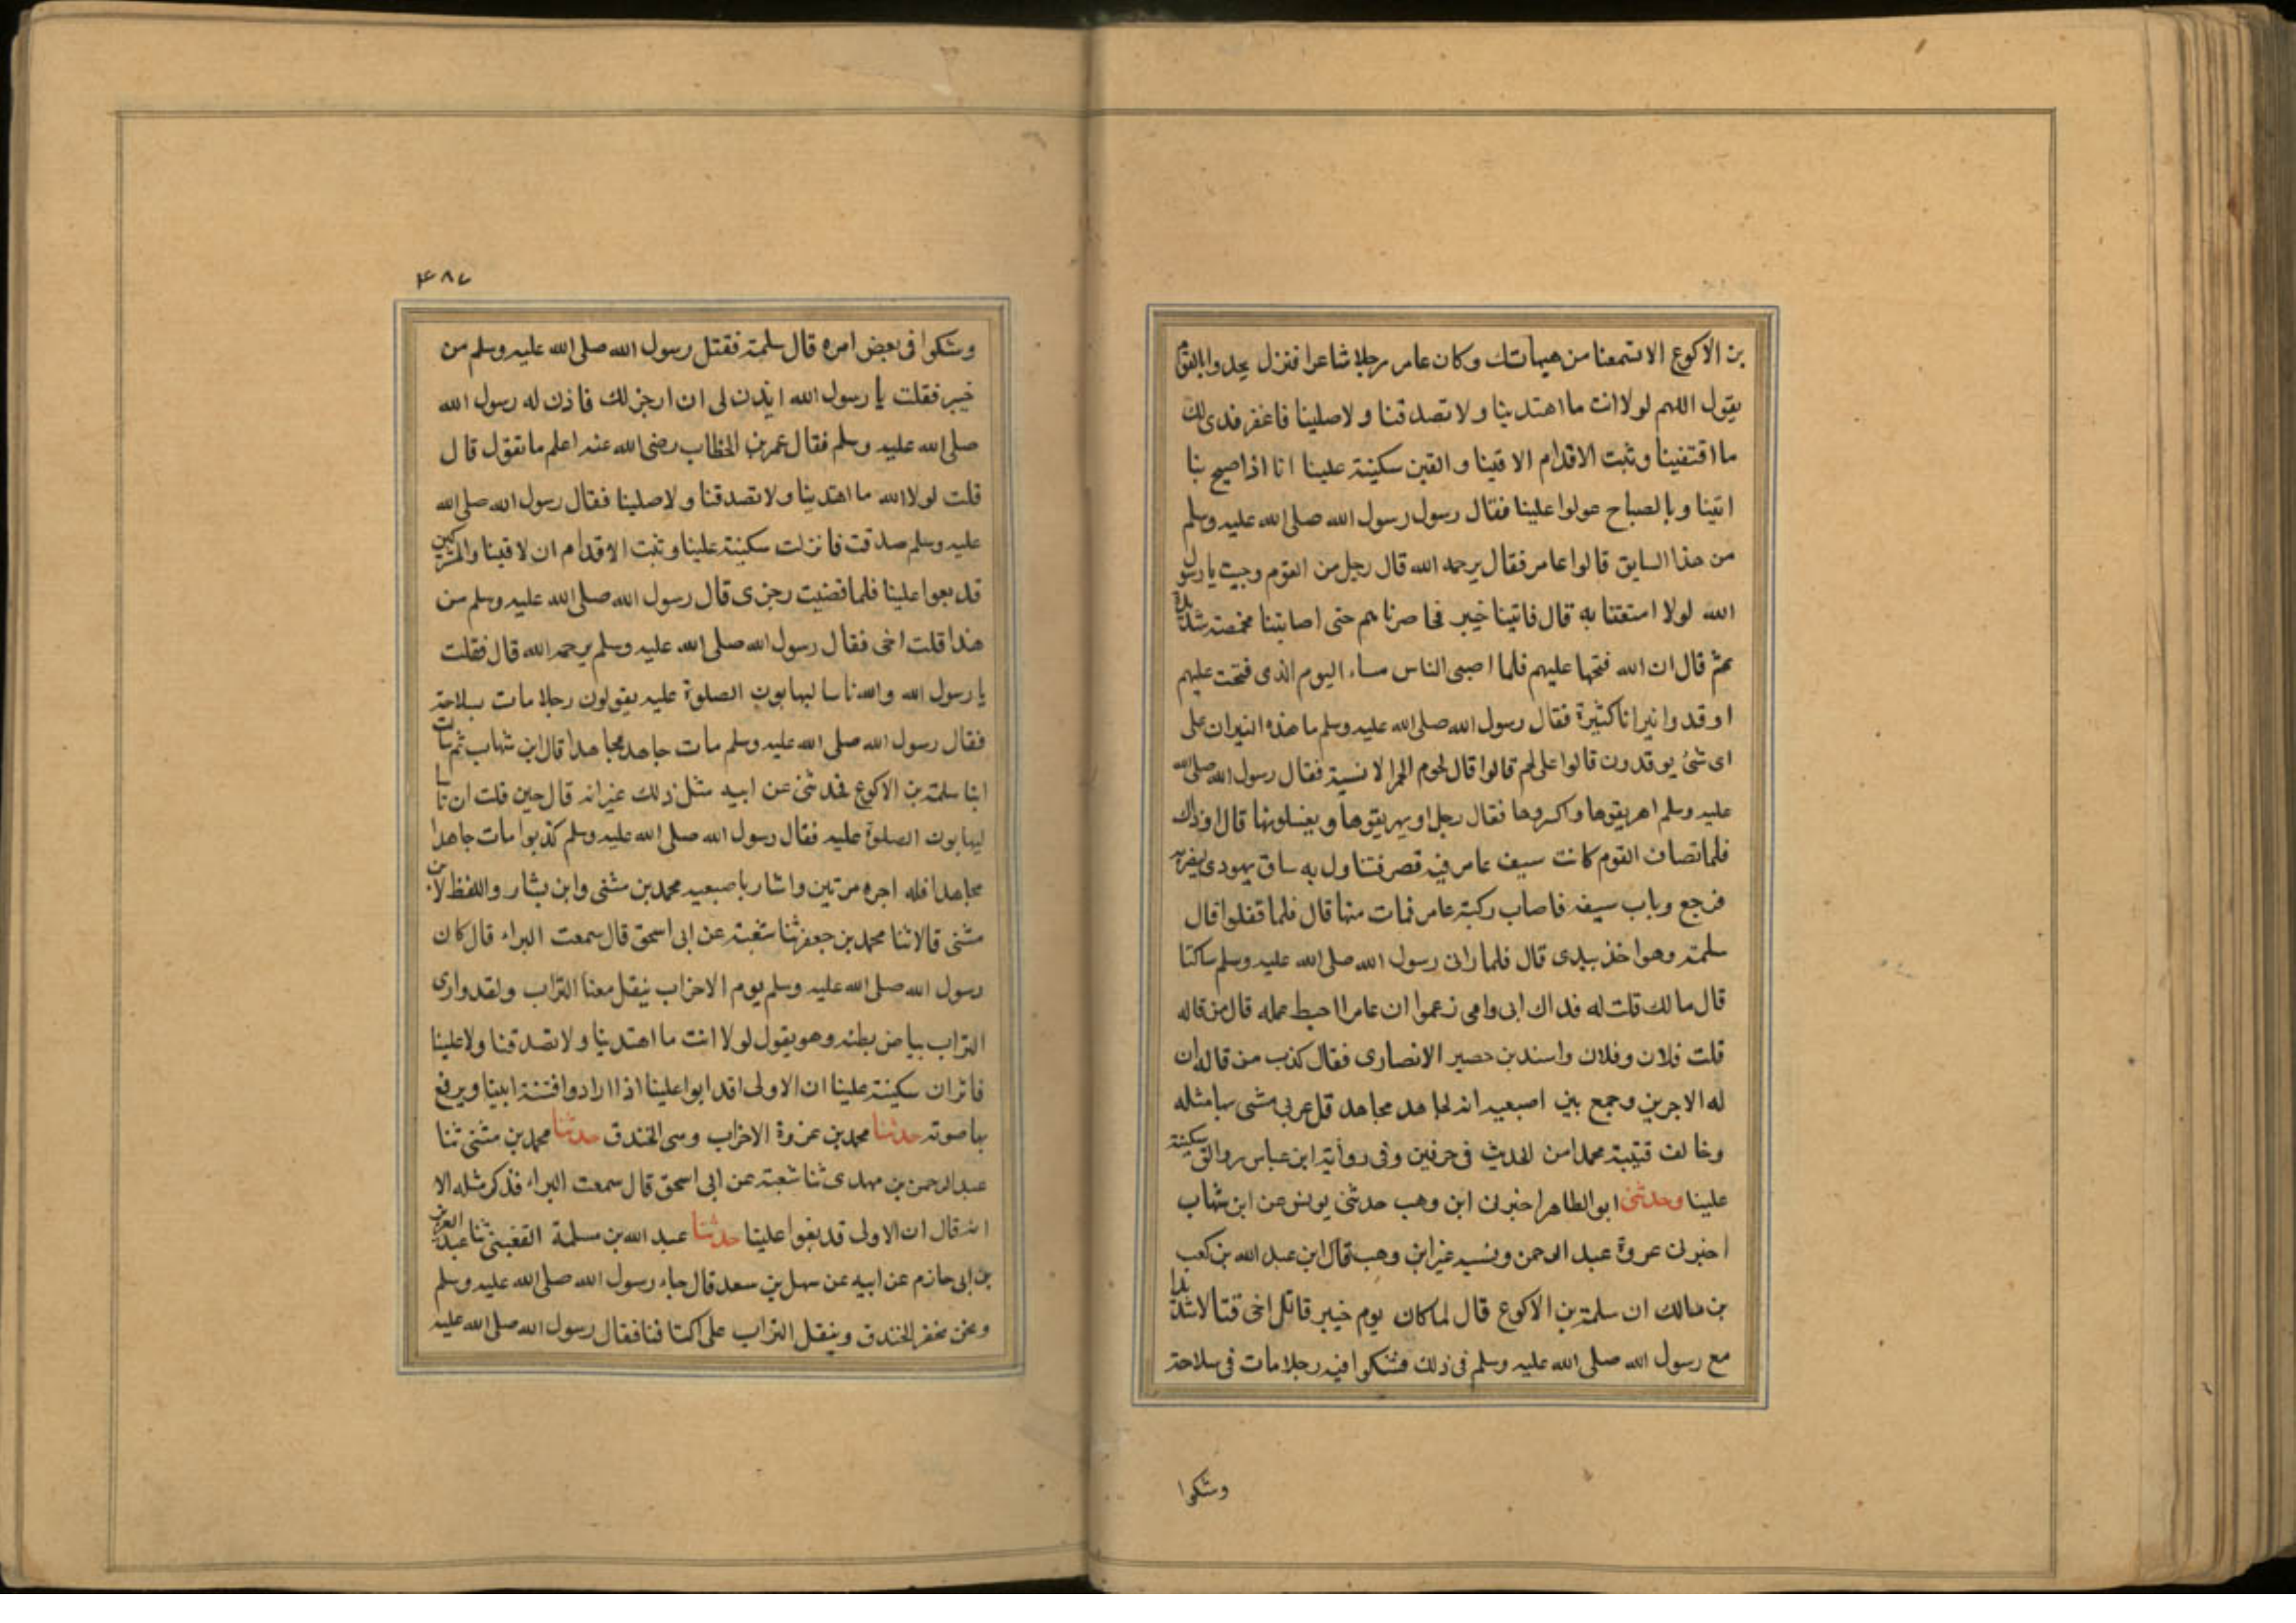 بن الاكوع الا تسمعنا من هيهاتك وكان عامر رجلا شاعرا فنزل يحدوا بالقوم
يقول اللهم لولا انت ما اهتدينا ولا تصدقنا ولا صلينا فاغفر فدى لك
ما اقتفينا وثبت الاقدام الاقينا والقين سكينة علينا انا اذا صيح بنا
اتينا وبالصباح عولوا علينا فقال رسول رسول الله صلى الله عليه وسلم
من هذا السايق قالوا عامر فقال يرحمه الله قال رجل من القوم وجبت يا رسول
الله لولا امتعتنا به قال فاتينا خيبر فحاصرناهم حتى اصابتنا مخمصة شديدة
ثم قال ان الله فتحها عليهم فلما اصبى الناس مساء اليوم الذى فتحت عليهم
اوقدوا نيرانا كثيرة فقال رسول الله صلى الله عليه وسلم ما هذه النيران على
اى شئ يوقدون قالوا على لحم قالوا قال لحوم الحمر الانسية فقال رسول الله صلى الله
عليه وسلم اهريقوها واكسروها فقال رجل او يهريقوها ويغسلونها قال او ذاك
فلما تصاف القوم كانت سيف عامر فيه قصر فتناول به ساق يهودى ليضربه
فرجع وباب سيفه فاصاب ركبة عامر فمات منها قال فلما قفلوا قال
سلمة وهو اخذ بيدى قال فلما رانى رسول الله صلى الله عليه وسلم ساكتا
قال مالك قلت له فداك ابى وامى زعموا ان عامرا احبط عمله قال من قاله
قلت فلان وفلان واسند بن حصير الانصارى فقال كذب من قاله ان
له الاجرين وجمع بين اصبعيه انه لجاهد مجاهد قل عربى مشى بها مثله
وخالف قتيبة محمدا من الحديث فى حرفين وفى رواية ابن عباس والق سكينة
علينا وحدثنى ابو الطاهر اخبرنى ابن وهب حدثنى يونس عن ابن شهاب
اخبرنى عروة عبد الرحمن ونسبه غير ابن وهب قال ابن عبد الله بن كعب
بن مالك ان سلمة بن الاكوع قال لما كان يوم خيبر قاتل اخى قتالا شديدا
مع رسول الله صلى الله عليه وسلم فى ذلك فشكوا فيه رجلا مات فى سلاحه
وشكوا
۴۸۷
وشكوا فى بعض امره قال سلمة فقتل رسول الله صلى الله عليه وسلم من
خيبر فقلت يا رسول الله ايذن لى ان ارجز لك فاذن له رسول الله
صلى الله عليه وسلم فقال عمر بن الخطاب رضى الله عنه اعلم ما تقول قال
قلت لولا الله ما اهتدينا ولا تصدقنا ولا صلينا فقال رسول الله صلى الله
عليه وسلم صدقت فانزلت سكينة علينا وثبت الاقدام ان لاقينا والمشركين
قد بعوا علينا فلما قضيت رجزى قال رسول الله صلى الله عليه وسلم من
هذا قلت اخى فقال رسول الله صلى الله عليه وسلم يرحمه الله قال فقلت
يا رسول الله والله ناسا ليهابون الصلوة عليه يقولون رجلا مات بسلاحه
فقال رسول الله صلى الله عليه وسلم مات جاهد مجاهدا قال ابن شهاب ثم سات
ابنا سلمة بن الاكوع فحدثنى عن ابيه مثل ذلك غير انه قال حين قلت ان ناسا
ليهابون الصلوة عليه فقال رسول الله صلى الله عليه وسلم كذبوا مات جاهدا
مجاهدا فله اجره مرتين واشار باصبعيه محمد بن مثنى وابن بشار واللفظ لابن
مثنى قالا ثنا محمد بن جعفر ثنا شعبة عن ابى اسحق قال سمعت البراء قال كان
رسول الله صلى الله عليه وسلم يوم الاحزاب ينقل معنا التراب ولقد وارى
التراب بياض بطنه وهو يقول لولا انت ما اهتدينا ولا تصدقنا ولا علينا
فانزلن سكينة علينا ان الاولى اقد ابوا علينا اذا ارادوا فتنة ابينا ويرفع
بها صوته حدثنا محمد بن عزوة الاحزاب وسى الخندق حدثنا محمد بن مثنى ثنا
عبد الرحمن بن مهدى ثنا شعبة عن ابى اسحق قال سمعت البراء فذكر مثله الا
انه قال ان الاولى قد بغوا علينا حدثنا عبد الله بن مسلمة القعبنى ثنا عبد العزيز
بن ابى حازم عن ابيه عن سهل بن سعد قال جاء رسول الله صلى الله عليه وسلم
ونحن نحفر الخندق وينقل التراب على اكتافنا فقال رسول الله صلى الله عليه